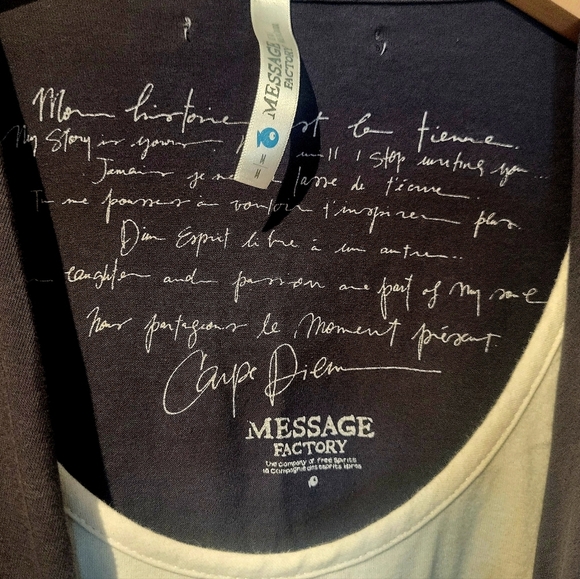 MESSAGE
FACTORY
Mon histoire est la tienne.
My Story is yours. will I stop writing you...
Jamais je me lasse de t'écrire.
Tu me pousses à vouloir t'inspirer plus.
D'un Esprit libre à un autre...
Laughter and passion are part of My soul
Nous partageons le Moment présent.
Carpe Diem
MESSAGE
FACTORY
the Company of Free Spirits
la Compagnie des esprits libres